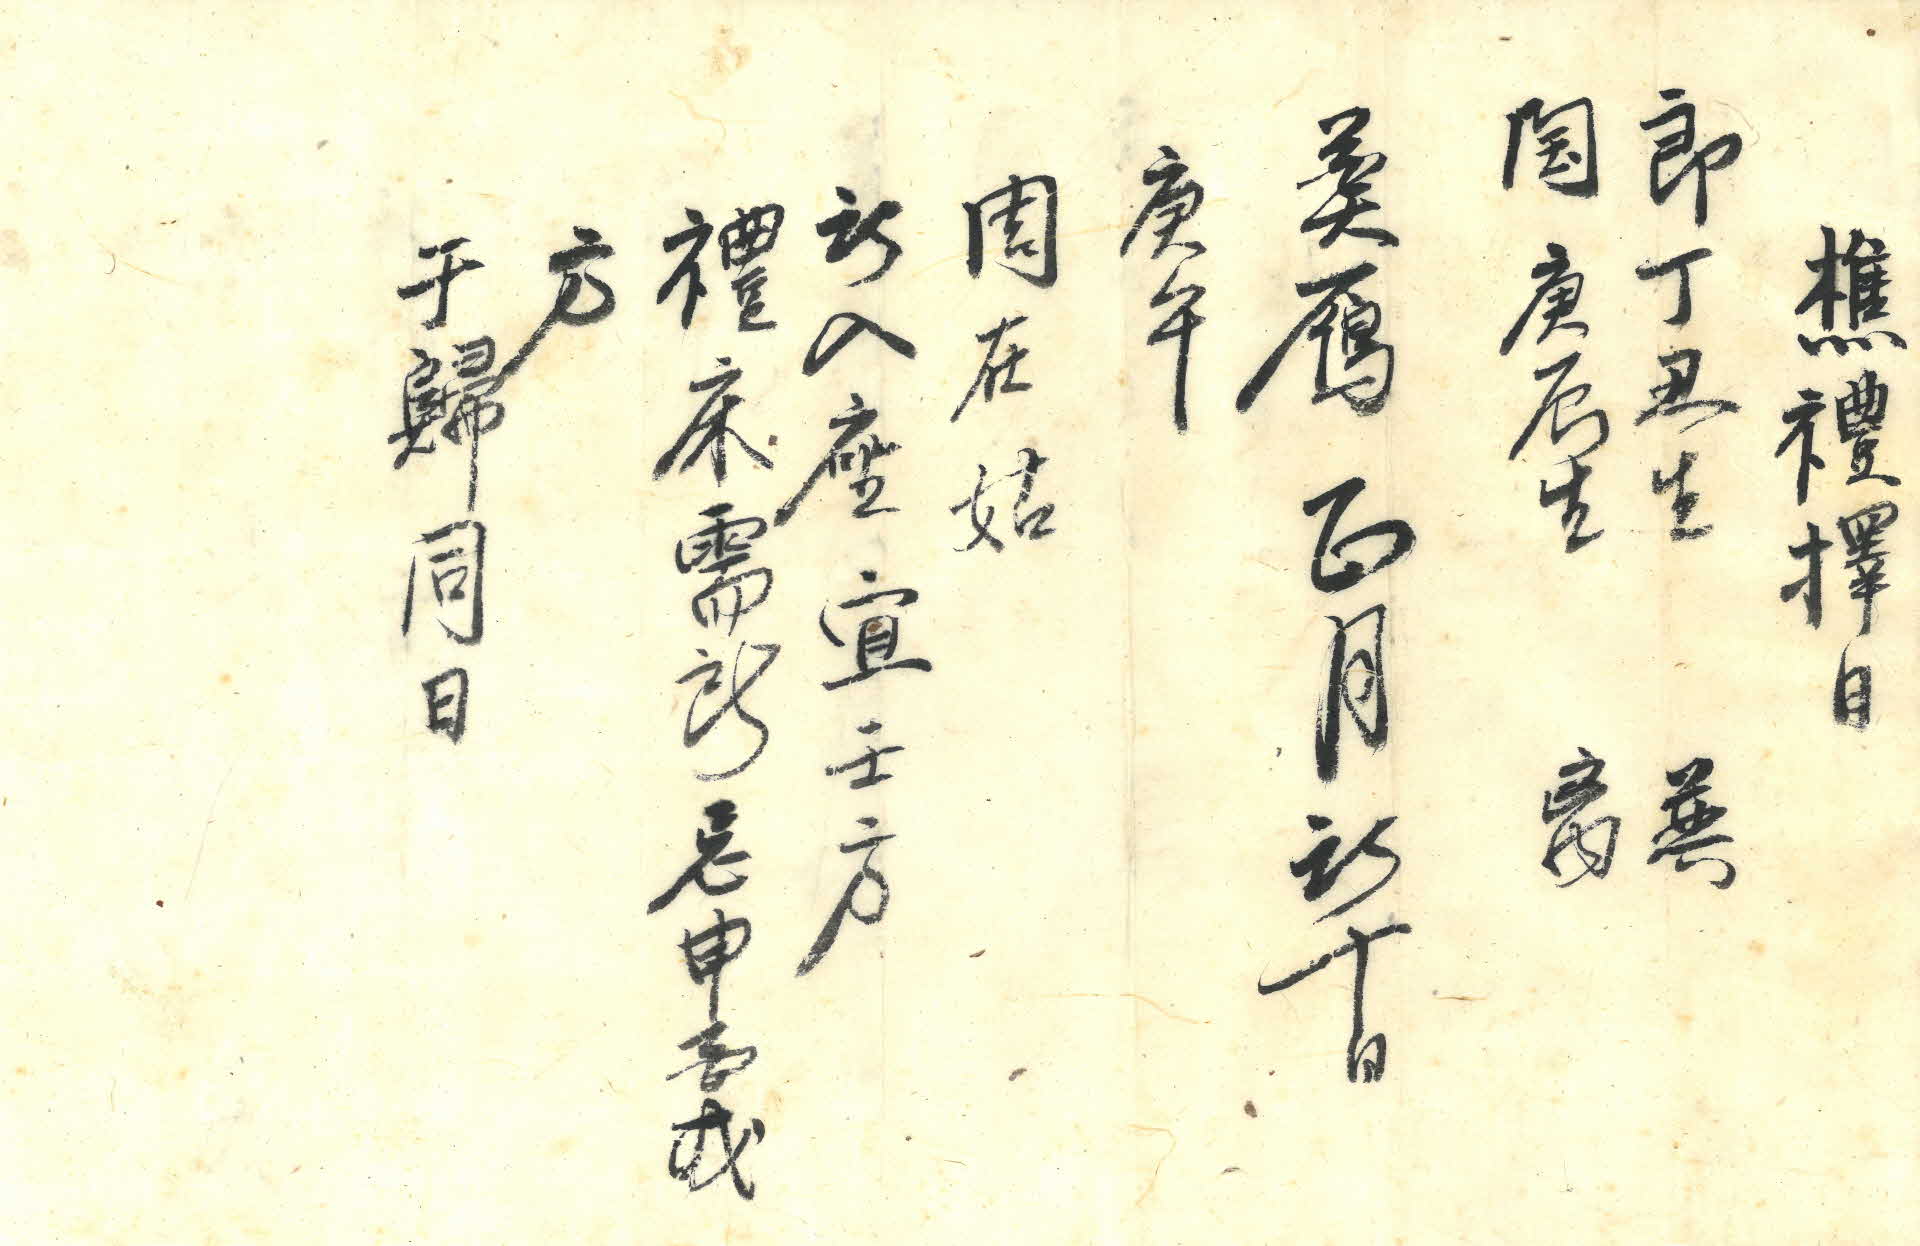 樵禮擇日
郎丁丑生
閨庚辰生
奠鴈 正月初十日
庚午
周在姑
初入座宜壬方
禮床需 忌申酉戌
方
于歸同日